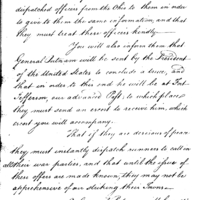 dispatched officers from the Ohio to them in order
to give to them the same information, and that
they must treat these officers kindly—
You will also inform them that
General Putnam will be sent by the President
of the United States to conclude a truce, and
that in order to this end he will be at Fort
Jefferson, our advanced Post, to which place
they must send an escort to receive him, which
escort you will accompany.
That if they are desirous of peace
they must instantly dispatch runners to call in
all their war parties, and that until the issue of
these offers are made known, they may not be
apprehensive of our striking their Towns